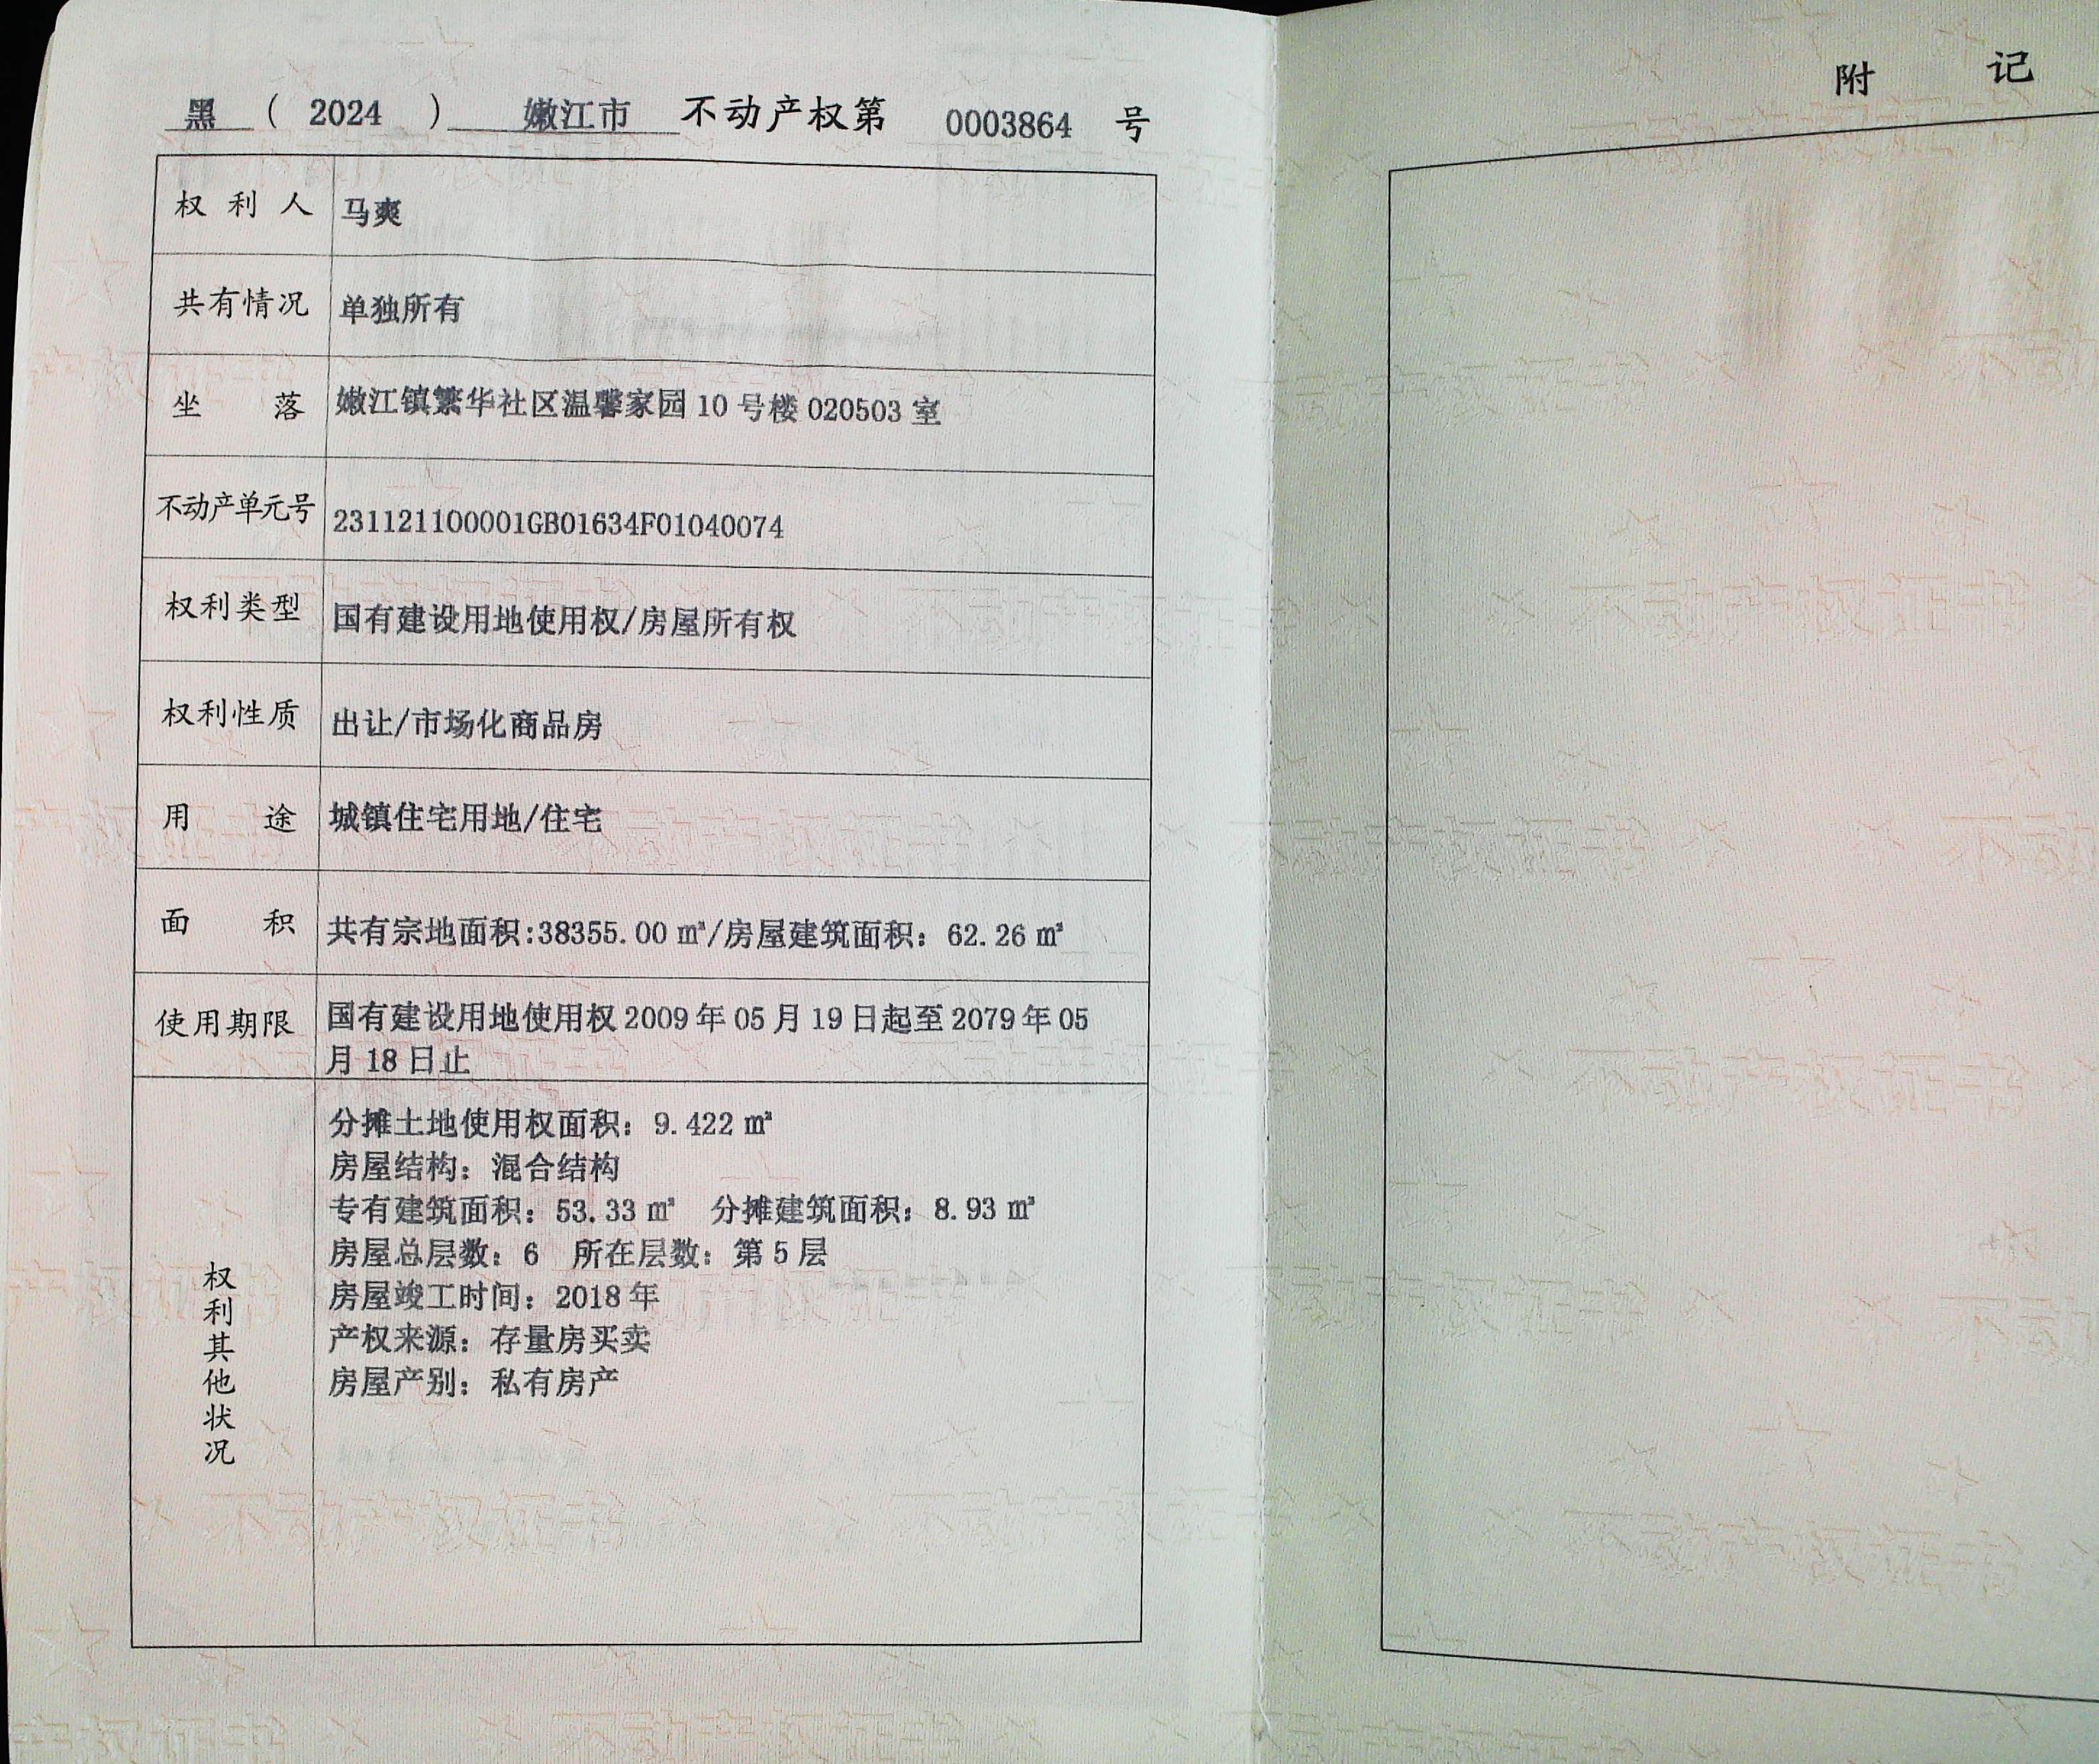 黑 ( 2024 ) 嫩江市 不动产权第 0003864 号
权利人 马爽
共有情况 单独所有
坐落 嫩江镇繁华社区温馨家园 10 号楼 020503 室
不动产单元号 231121100001GB01634F01040074
权利类型 国有建设用地使用权/房屋所有权
权利性质 出让/市场化商品房
用途 城镇住宅用地/住宅
面积 共有宗地面积:38355.00 ㎡/房屋建筑面积: 62.26 ㎡
使用期限 国有建设用地使用权 2009 年 05 月 19 日起至 2079 年 05
月 18 日止
权利其他状况
分摊土地使用权面积: 9.422 ㎡
房屋结构: 混合结构
专有建筑面积: 53.33 ㎡ 分摊建筑面积: 8.93 ㎡
房屋总层数: 6 所在层数: 第 5 层
房屋竣工时间: 2018 年
产权来源: 存量房买卖
房屋产别: 私有房产
附记